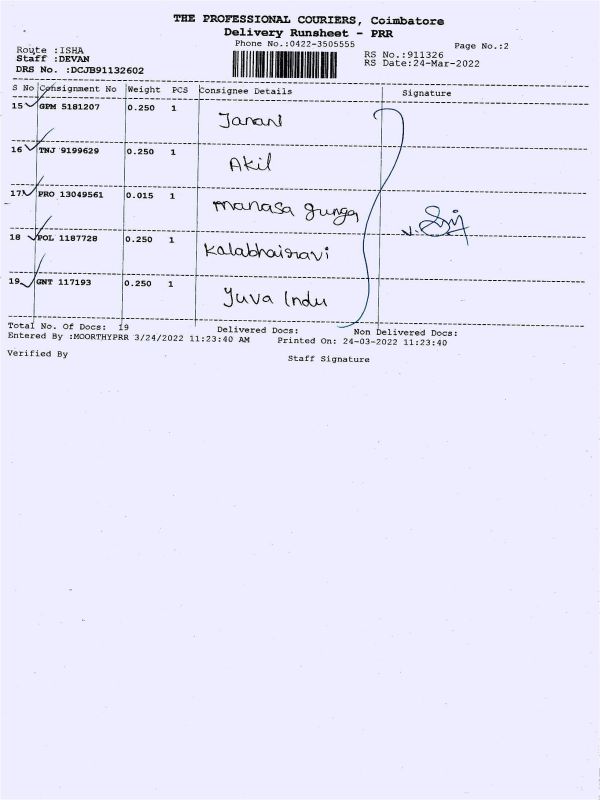 THE PROFESSIONAL COURIERS, Coimbatore
Delivery Runsheet - PRR
Phone No.:0422-3505555 Page No.:2
Route :ISHA RS No.:911326
Staff :DEVAN RS Date:24-Mar-2022
DRS No. :DCJB91132602
S No Consignment No Weight PCS Consignee Details Signature
15 GPM 5181207 0.250 1 Janani
16 TNJ 9199629 0.250 1 Akil
17 PRO 13049561 0.015 1 manasa gunga
18 POL 1187728 0.250 1 Kalabhairavi
19 GNT 117193 0.250 1 Yuva Indu
Total No. Of Docs: 19 Delivered Docs: Non Delivered Docs:
Entered By :MOORTHYPRR 3/24/2022 11:23:40 AM Printed On: 24-03-2022 11:23:40
Verified By Staff Signature